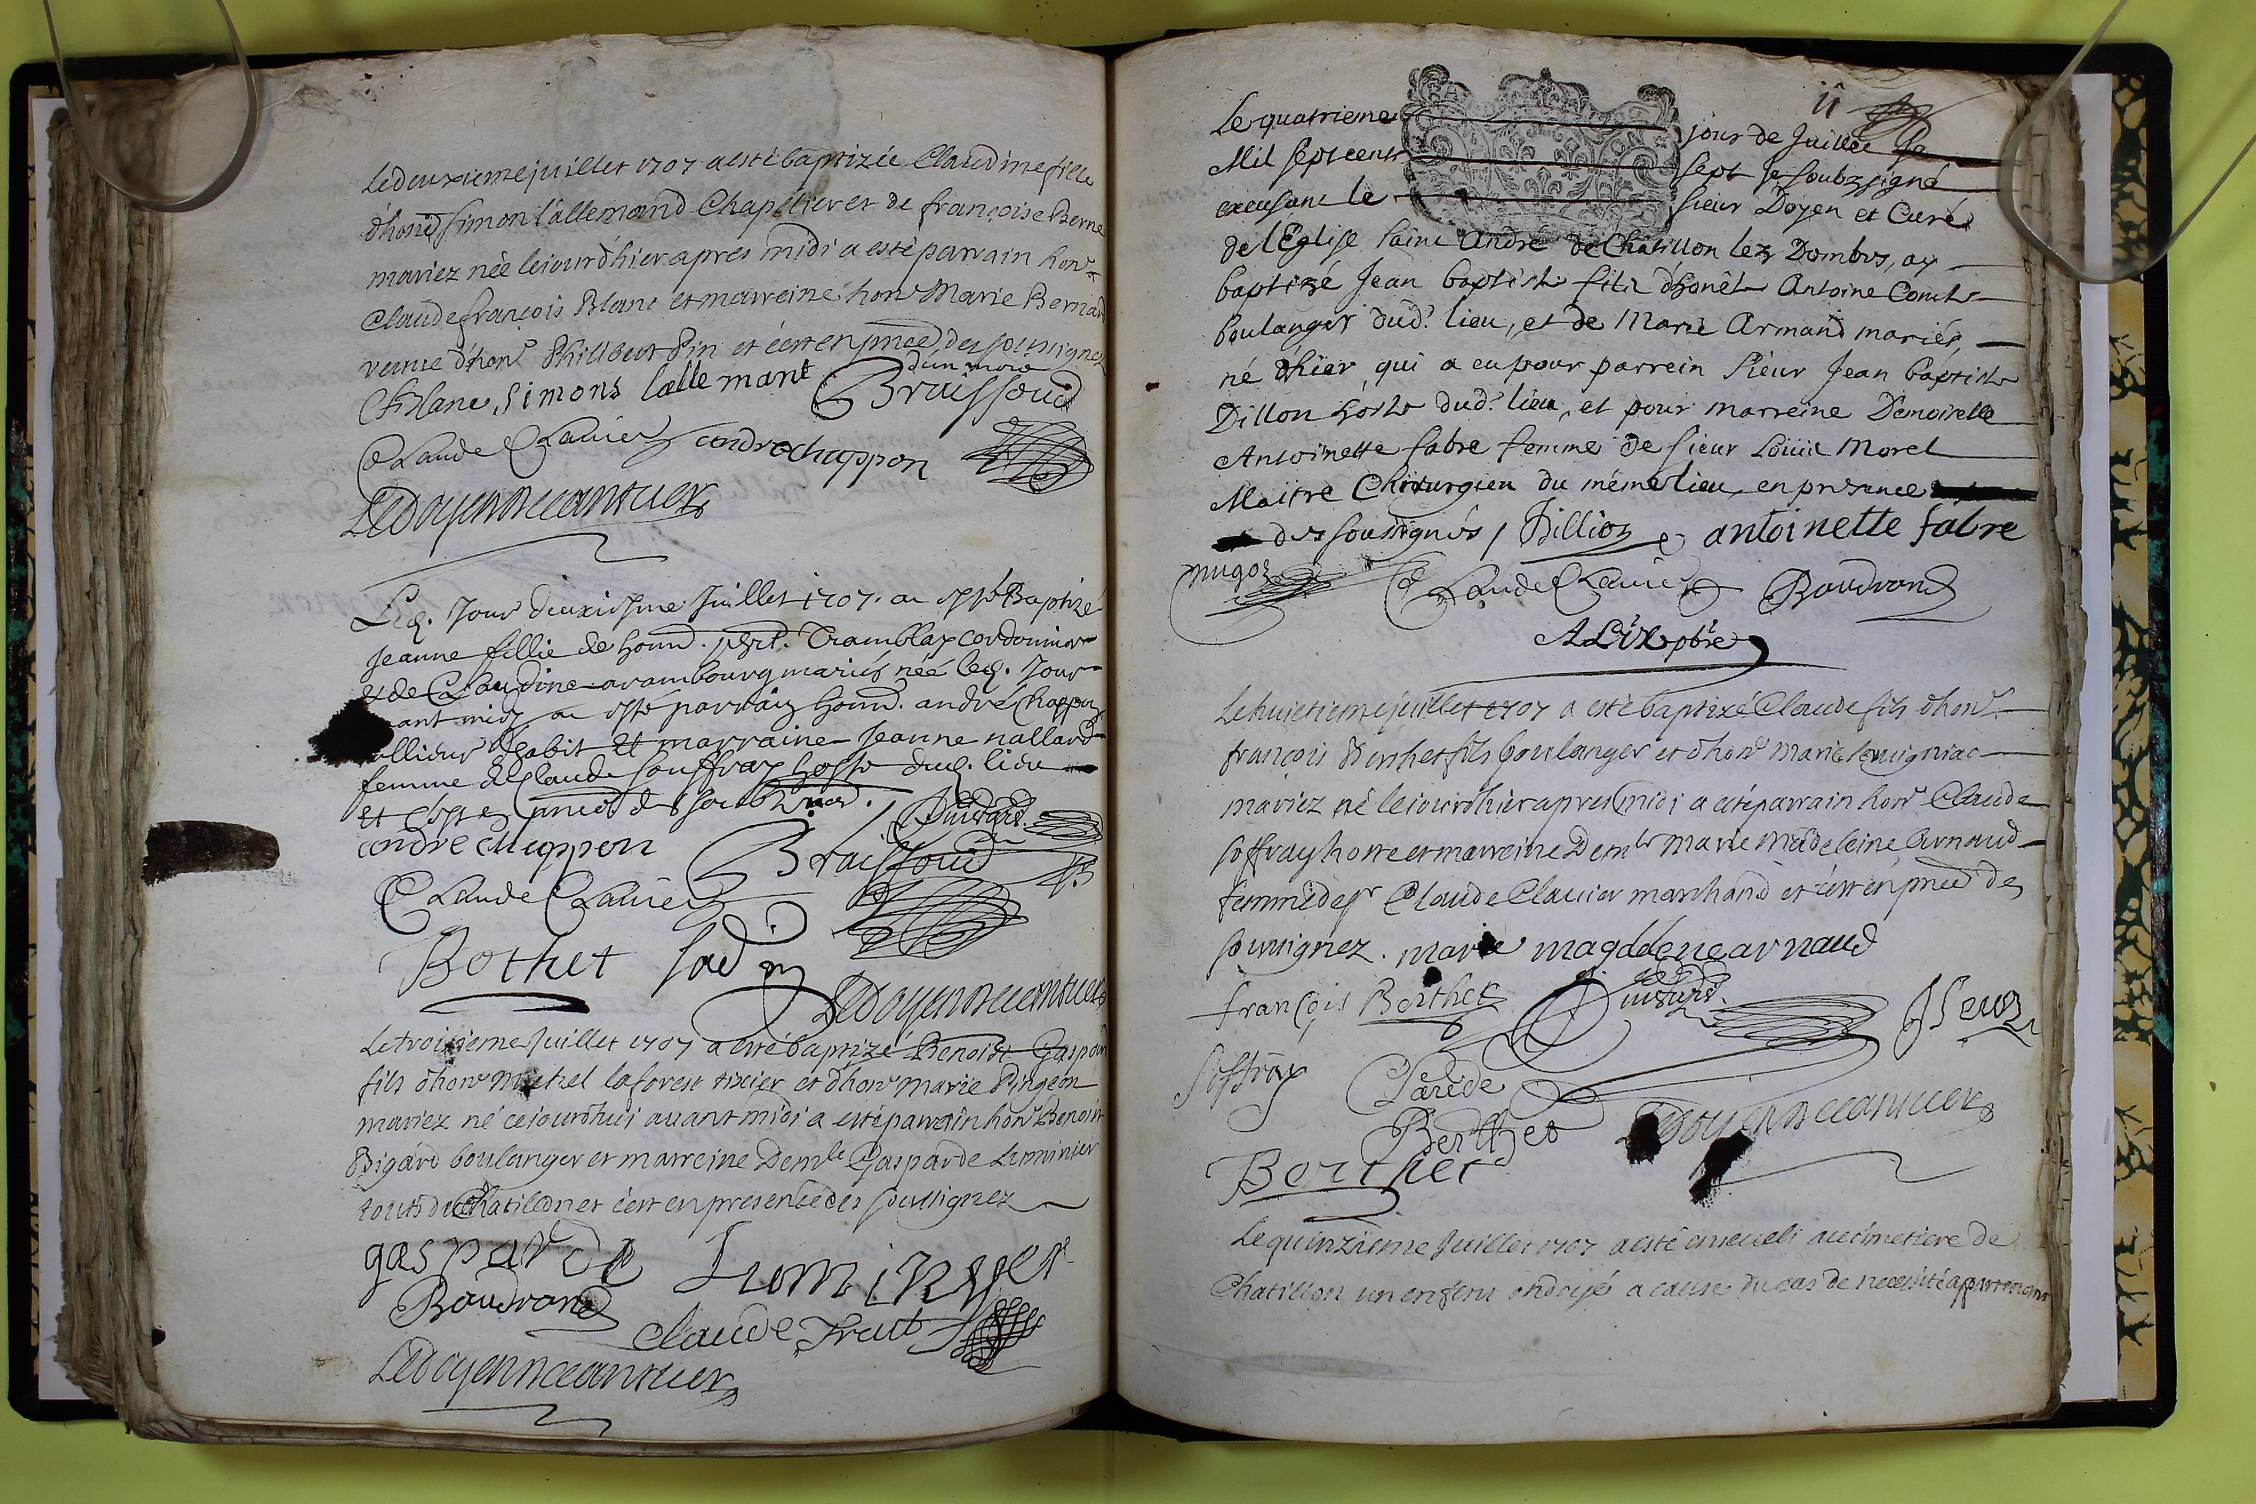 Le deuxieme juillet 1707 a esté baptizée Claudine fille
d'hon simon lallemand Chapelier et de françoise Berne
mariez née le iour d'hier apres midi a esté parrain hon^r
Claude françois Blanc et marreine hon^e Marie Bernard
veuve d'hon^r Philibert Pin et c'est en pnce des soussignez
d'un mois
C f Blanc, simons lallemant Braissoud
Claude Clavier andre chappon
Le doyen
Led. Jour deuxiesme Juillet 1707. a esté Baptizé
Jeanne fillie de honn. Tramblay cordonnier
et de Claudine arambourg mariés née led. Jour
avant midy a esté parrain honn. andré Chappon
tallieur d'abit et marraine Jeanne nallard
femme de Claude souffray hoste dud. lieu
et c'est en pnce des soubz.nes.
andre chappon Braissoud
Claude Clavier
Bothet
Le doyen
Le troisieme Juillet 1707 a esté baptizé Benoist Gaspard
fils d'hon^r Michel laforest tixier et d'hon^e marie Pingeon
mariez né ce iourd'hui avant midi a esté parrain hon^r Benoist
Bigard boulanger et marreine Dem^le Gasparde Luminier
touts de Chatillon et c'est en presence des soussignez
gasparde Luminyer
Boudrand
Claude Trait
Le doyen
11
Le quatrieme jour de Juillet Je
Mil sept cents sept je soubzsigné
excusant le sieur Doyen et Curé
de l'Église saint André de Châtillon lez Dombes, ay
baptizé Jean baptiste filz d'honêt Antoine Comte
boulanger dud.^t lieu, et de Marie Armand mariés
né d'hier, qui a eu pour parrein sieur Jean baptiste
Dillon hoste dud.^t lieu, et pour marreine Demoiselle
Antoinette fabre femme de sieur Loüis Morel
Maitre Chirurgien du même lieu, en presence
des soussignés / Billion antoinette fabre
Claude Clavier Boudrand
ALix pbre
Le huictieme juillet 1707 a esté baptizé Claude fils d'hon^r
françois Berthet fils boulanger et d'hon^e Marie
mariez né le iour d'hier apres midi a esté parrain hon^r Claude
soffray hoste et marreine Dem^le Marie Madeleine Arnaud
femme de s^r Claude Clavier marchand et c'est en pnce des
soussignez. marie magdelene arnaud
françois Berthet
soffray
Berthet
Berthet
Le doyen
Le quinzieme Juillet 1707 a esté enseveli au cimetiere de
Chatillon un enfent ondoyé a cause du cas de necessité appartenant